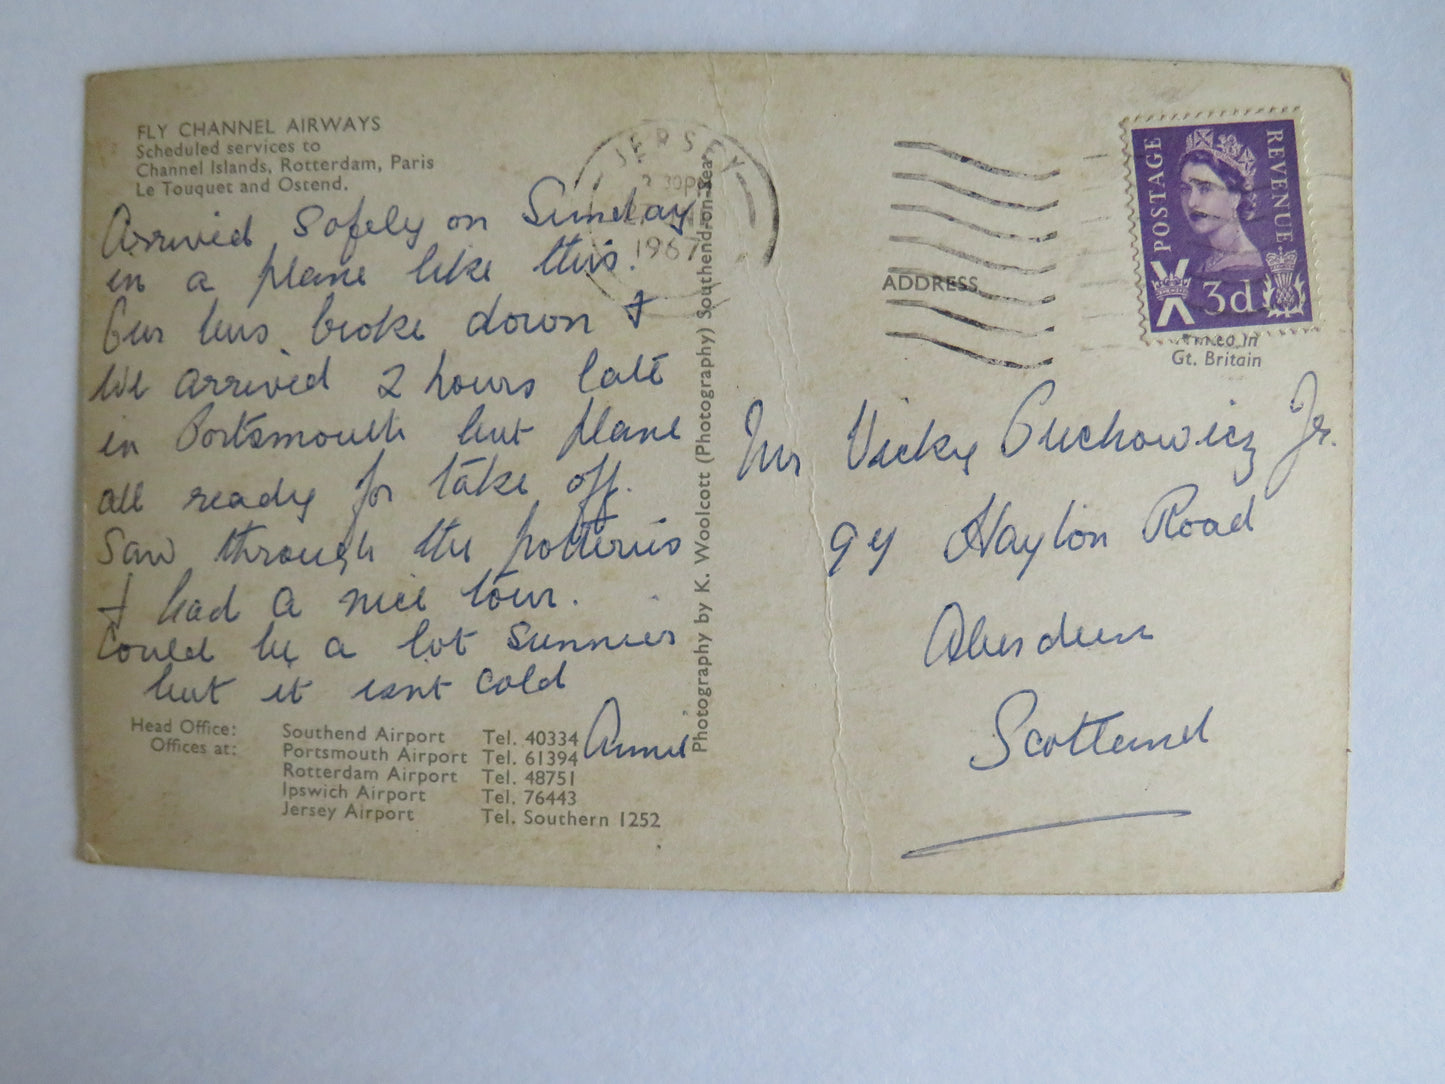 FLY CHANNEL AIRWAYS
Scheduled services to
Channel Islands, Rotterdam, Paris
Le Touquet and Ostend.
Arrived safely on Sunday
in a plane like this.
Our bus broke down &
We arrived 2 hours late
in Portsmouth but plane
all ready for take off.
Saw through the potteries
& had a nice tour.
Could be a lot sunnier
but it isnt cold
Head Office: Southend Airport Tel. 40334
Offices at: Portsmouth Airport Tel. 61394
Rotterdam Airport Tel. 48751
Ipswich Airport Tel. 76443
Jersey Airport Tel. Southern 1252
Photography by K. Woolcott (Photography) Southend-on-Sea
JERSEY
1967
POSTAGE
REVENUE
3d
ADDRESS
in
Gt. Britain
Mr Vicky Jr.
94 Hayton Road
Aberdeen
Scotland